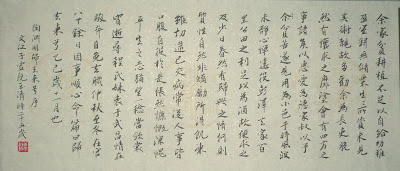 余家貧耕植不足以自給幼稚
盈室缾無儲粟生生所資未見
其術親故多勸余為長吏脫
然有懷求之靡途會有四方之
事諸侯以惠愛為德家叔以
余貧苦遂見用為小邑于時風波
未靜心憚遠役彭澤去家百
里公田之利足以為酒故便求之
及少日眷然有歸歟之情何則
質性自然非矯勵所得飢凍
雖切違己交病嘗從人事皆
口腹自役於是悵然慷慨深愧
平生之志猶望一稔當斂裳
宵逝尋程氏妹喪于武昌情在
駿奔自免去職仲秋至冬在官
八十餘日因事順心命篇曰歸
去來兮乙巳歲十一月也
陶淵明歸去來兮序